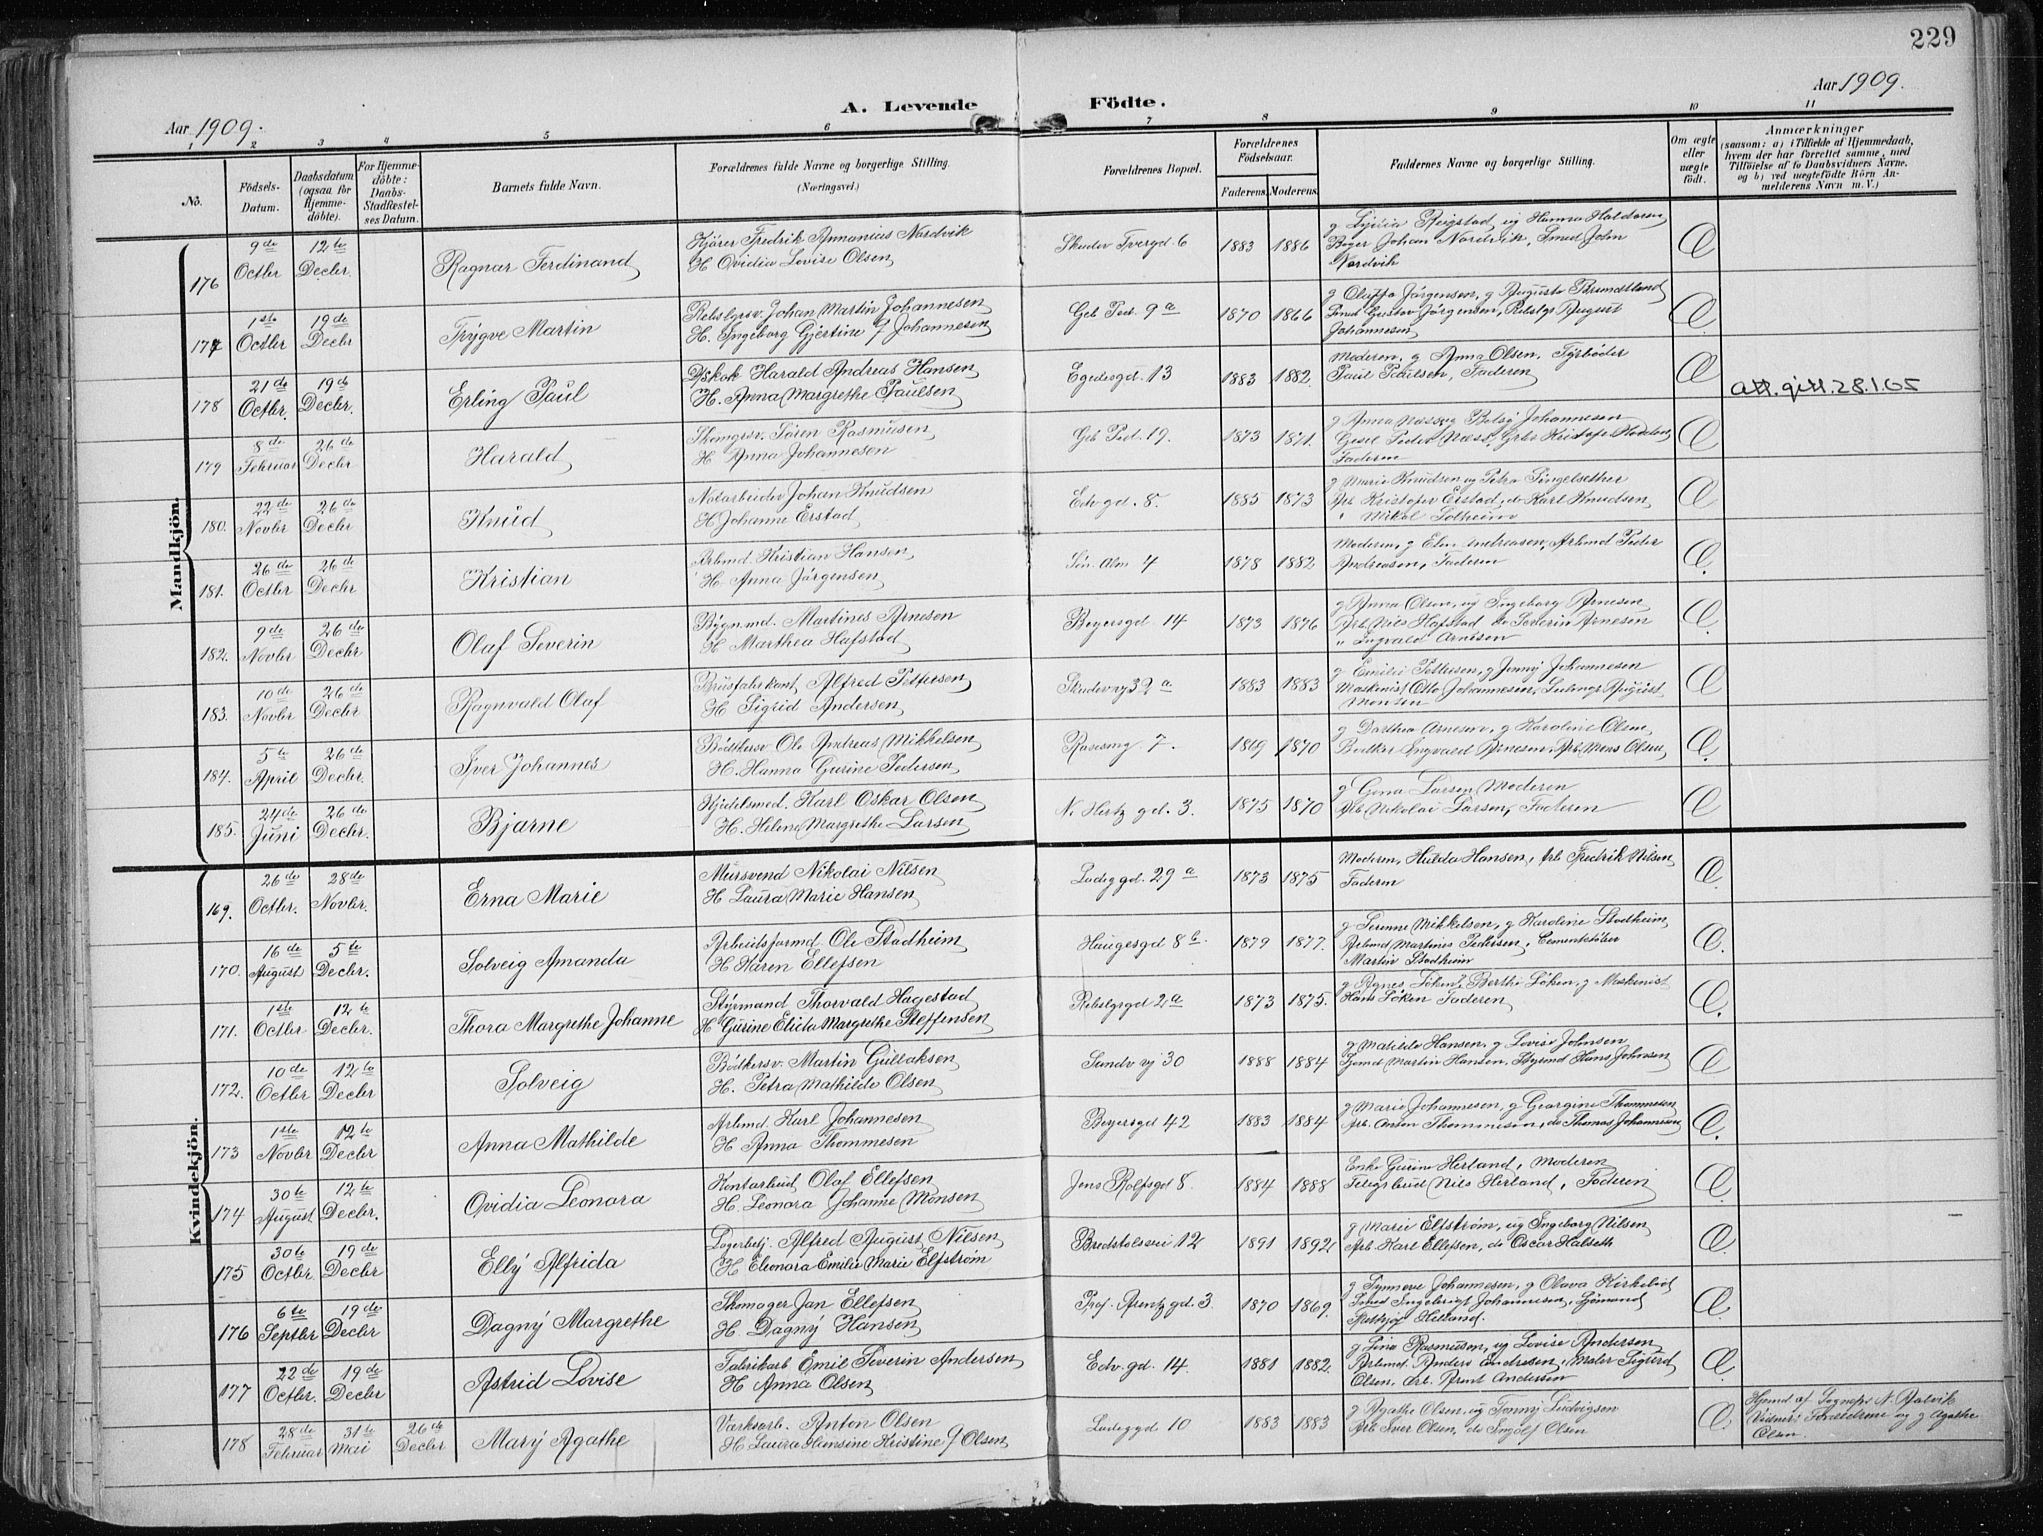 229
Aar 1909.
A. Levende Födte.
Aar 1909.
1 2 3 4 5 6 7 8 9 10 11
No.
Födsels-Datum.
Daabsdatum (ogsaa for Hjemme-döbte).
For Hjemme-döbte: Daabs-Stadfæstel-ses Datum.
Barnets fulde Navn.
Forældrenes fulde Navne og borgerlige Stilling.
(Næringsvei.)
Forældrenes Bopæl.
Forældrenes Födselsaar.
Faderens. Moderens.
Faddernes Navne og borgerlige Stilling.
Om ægte eller uægte födt.
Anmærkninger
(saasom: a) i Tilfælde af Hjemmedaab, hvem der har forrettet samme, med Tilföielse af to Daabsvidners Navne, og b) ved uægtefödte Börn An-melderens Navn m. V.)
Mandkjön.
176 9de Octbr 12te Decbr. Ragnar Ferdinand Kjörer Fredrik Annanius Nordvik
H Ovidia Lovise Olsen Skuder Tvergd. 6 1883 1886 Reigstad, ug Hanna
Johan Nordvik, Smed John
Nordvik Æ
177 1ste Octbr 19de Decbr Trygve Martin Rebslgrsv. Johan Martin Johannesen
H. Ingeborg Gjertine f Johannesen Geb Ped. 9a 1870 1866 g Oluffa Jörgensen, g Augusta Brundtland
Smed Gustav Jörgensen, Rebslgr August
Johannesen Æ
178 21de Octbr. 19de Decbr. Erling Paul Dskok Harald Andreas Hansen
H. Anna Margrethe Paulsen Egedesgd. 13 1883 1882 Moderen, g Anna Olsen, Fyrböder
Paul Paulsen, Faderen Æ Att. gitt. 28.1.65
179 8de Februar 26de Decbr Harald Skomgrsv. Sören Rasmusen
H Anna Johannesen Geb Ped. 19. 1873 1871. g Anna Næss, g Betsy Johannesen
Gesel Peder Næss,
Faderen Æ
180. 22de Novbr 26de Decbr Knud Notarbeider Johan Knudsen
H Johanne Erstad Edv gd. 8. 1885 1873 g Marie Knudsen ug Petra
Arb Kristofer Erstad, do Karl Knudsen,
" Mikal Solheim Æ
181. 26de Octbr 26de Decbr Kristian Arbmd. Kristian Hansen,
H. Anna Jörgensen Sön. Alm 4 1878 1882 Moderen, g Andreasen, Arbmd Peder
Andreasen, Faderen Æ.
182. 9de Novbr 26de Decbr Olaf Severin Bygn.md. Martines Arnesen
H Marthea Hafstad Beyersgd. 14 1873 1876 g Anna Olsen, ug Ingeborg Arnesen
Arb Nils Hafstad do Severin Arnesen
" Ingvald Arnesen Æ.
183. 10de Novbr 26de Decbr Ragnvald Olaf Brusfabrkont. Alfred Pettersen
H Sigrid Andersen Skudevy 32a 1883 1883 g Emilie Pettersen, g Jenny Johannesen
Maskinist Otto Johannesen, August
Monsen Æ
184. 5te April 26de Decbr. Iver Johannes Bödkersv Ole Andreas Mikkelsen
H. Hanna Gurine Pedersen Rosesmg 7. 1869 1870 g Dorthea Arnesen, g Karoline Olsen
Bödker Ingvald Arnesen, Arb. Mons Olsen Æ.
185. 24de Juni 26de Decbr. Bjarne Kjedelsmed. Karl Oskar Olsen
H. Helene Margrethe Larsen N. Hertz gd. 3. 1875 1870 g Gina Larsen, Moderen
Arb. Nikolai Larsen, Faderen Æ
Kvindekjön.
169. 26de Octbr. 28de Novbr. Erna Marie Mursvend Nikolai Nilsen
H Laura Marie Hansen Ladeggd. 29a 1873 1875 Moderen, Hulda Hansen, Arb Fredrik Nilsen
Faderen Æ.
170. 16de August 5te Decbr. Solveig Amanda Arbeidsformd Ole Stadheim
H Karen Ellefsen Haugesgd 8b. 1879 1877. g Serine Mikkelsen, g Karoline Stadheim
Arbmd Martines Pedersen, Cementstöber
Martin Stadheim Æ.
171. 1ste Octbr 12te Decbr. Thora Margrethe Johanne Styrmand Thorvald Hagestad
H Gurine Elida Margrethe Steffensen Rebslgrgd 2a 1873 1875. g Agnes Löken, Berthe Löken, g Maskinist
Hans Löken Faderen Æ.
172. 10de Octbr 12te Decbr Solveig Bödkersv. Martin Gullaksen
H. Petra Mathilde Olsen Sandv vj 30 1888 1884 g Matilde Hansen, g Lovise Johnsen
Sjömd Martin Hansen, Styrmd Hans Johnsen Æ
173 1ste Novbr 12te Decbr Anna Mathilde Arbmd Karl Johannesen
H Anna Thommesen Beyersgd 42 1883 1884 g Marie Johannesen, g Georgine Thommesen
Arb. Anton Thommesen, do Thomas Johannesen Æ.
174 30te August 12te Decbr. Ovidia Leonora Kontorbud Olaf Ellefsen
H. Leonora Johanne Monsen Jens Rolfsgd 8. 1884 1888 Enke Gurine Herland, Moderen
Telegrbud Nils Herland, Faderen Æ.
175 30te Octbr. 19de Decbr Elly Alfrida Lagerbetj. Alfred August Nilsen
H Eleonora Emilie Marie Elfström Bredstolsvei 12 1891 1892 g Marie Elfström, ug Ingeborg Nilsen
Arb. Karl Ellefsen, do Oscar Halseth Æ.
176 6te Septbr 19de Decbr Dagny Margrethe Skomager Jan Ellefsen
H. Dagny Hansen Prof. Arentz gd. 3. 1870 1869. g Synnove Johannesen, g Olava Kirkelid
Smed Ingebrigt Johannesen, Sjömand
Hetland. Æ
177 22de Octbr. 19de Decbr Astrid Lovise Fabrikarb Emil Severin Andersen
H Anna Olsen Edv. gd. 14. 1881 1882 g Lina Rasmusen, ug Lovise Andersen
Arbmd. Anders Andresen, Maler Sigurd
Olsen, Arb. Arent Andersen Æ
178 28de Februar 31te Mai 26de Decbr Mary Agathe Værksarb. Anton Olsen
H. Laura Hansine Kristine f Olsen Ladeggd 10 1883 1883 g Agathe Olsen, ug Fanny Ludvigsen
Arb Iver Olsen, do Ingolf Olsen Æ Hjmd af Sognepr N. Palvik
Vidner: Forældrene og g Agathe
Olsen.